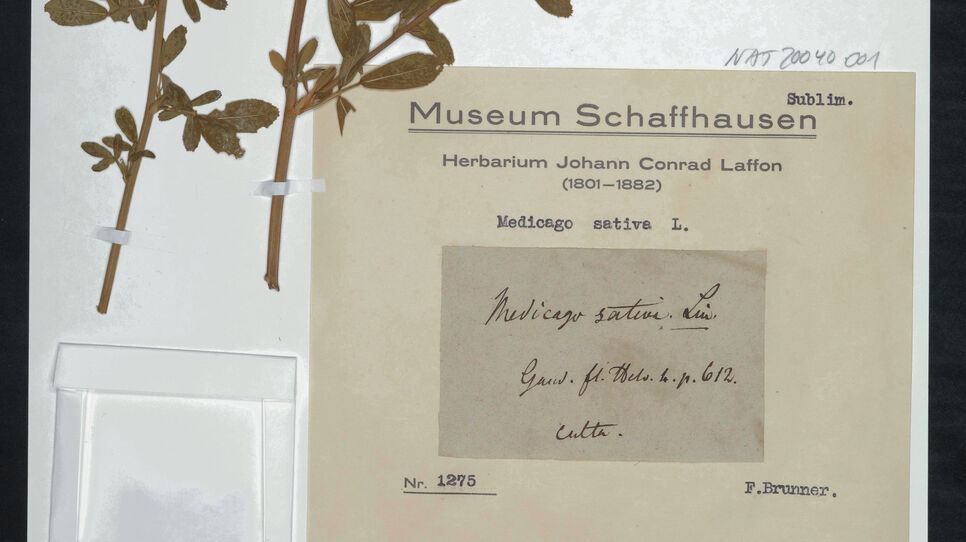 NAT20040 001
Sublim.
Museum Schaffhausen
Herbarium Johann Conrad Laffon
(1801–1882)
Medicago sativa L.
Medicago sativa. Lin.
Gaud. fl. Helv. 4. p. 612.
culta.
Nr. 1275
F.Brunner.